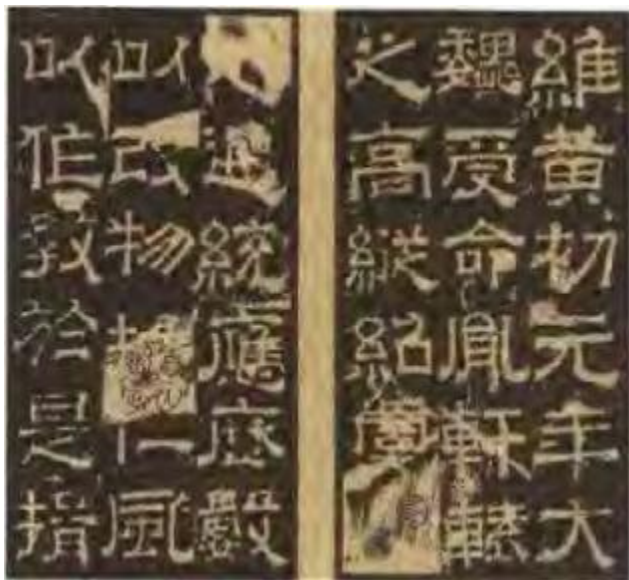 維黃初元年大
魏受命胤軒轅
之高縱紹虞
遐統應歷數
以改物仁風
以作教於是揖